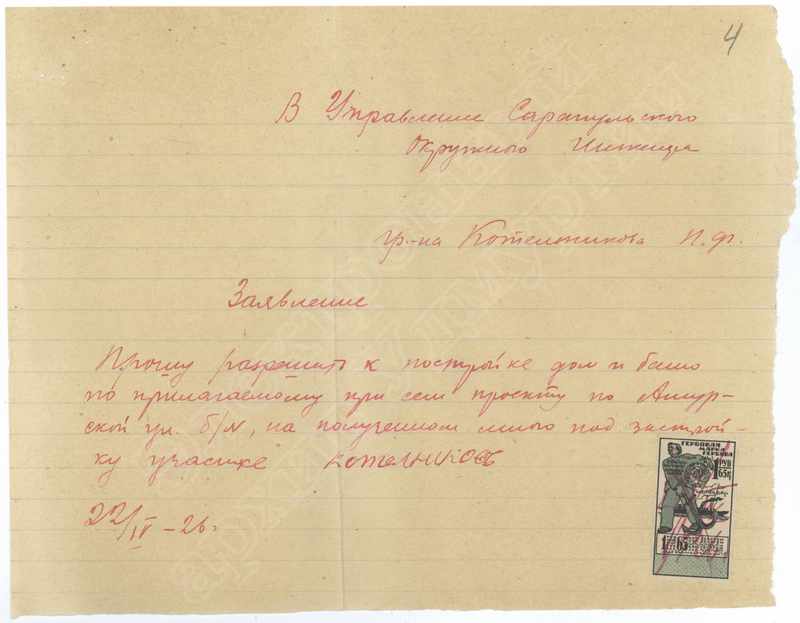 4
В Управление Сарапульского
Окружного Инженера
гр-на Котельникова П. Ф.
Заявление
Прошу разрешить к постройке дом и баню
по прилагаемому при сем проекту по Амур-
ской ул. б/N, на полученном мною под застрой-
ку участке Котельников
22/IV – 26 г.
ГЕРБОВАЯ
МАРКА
1 РУБ
65 К
1 65